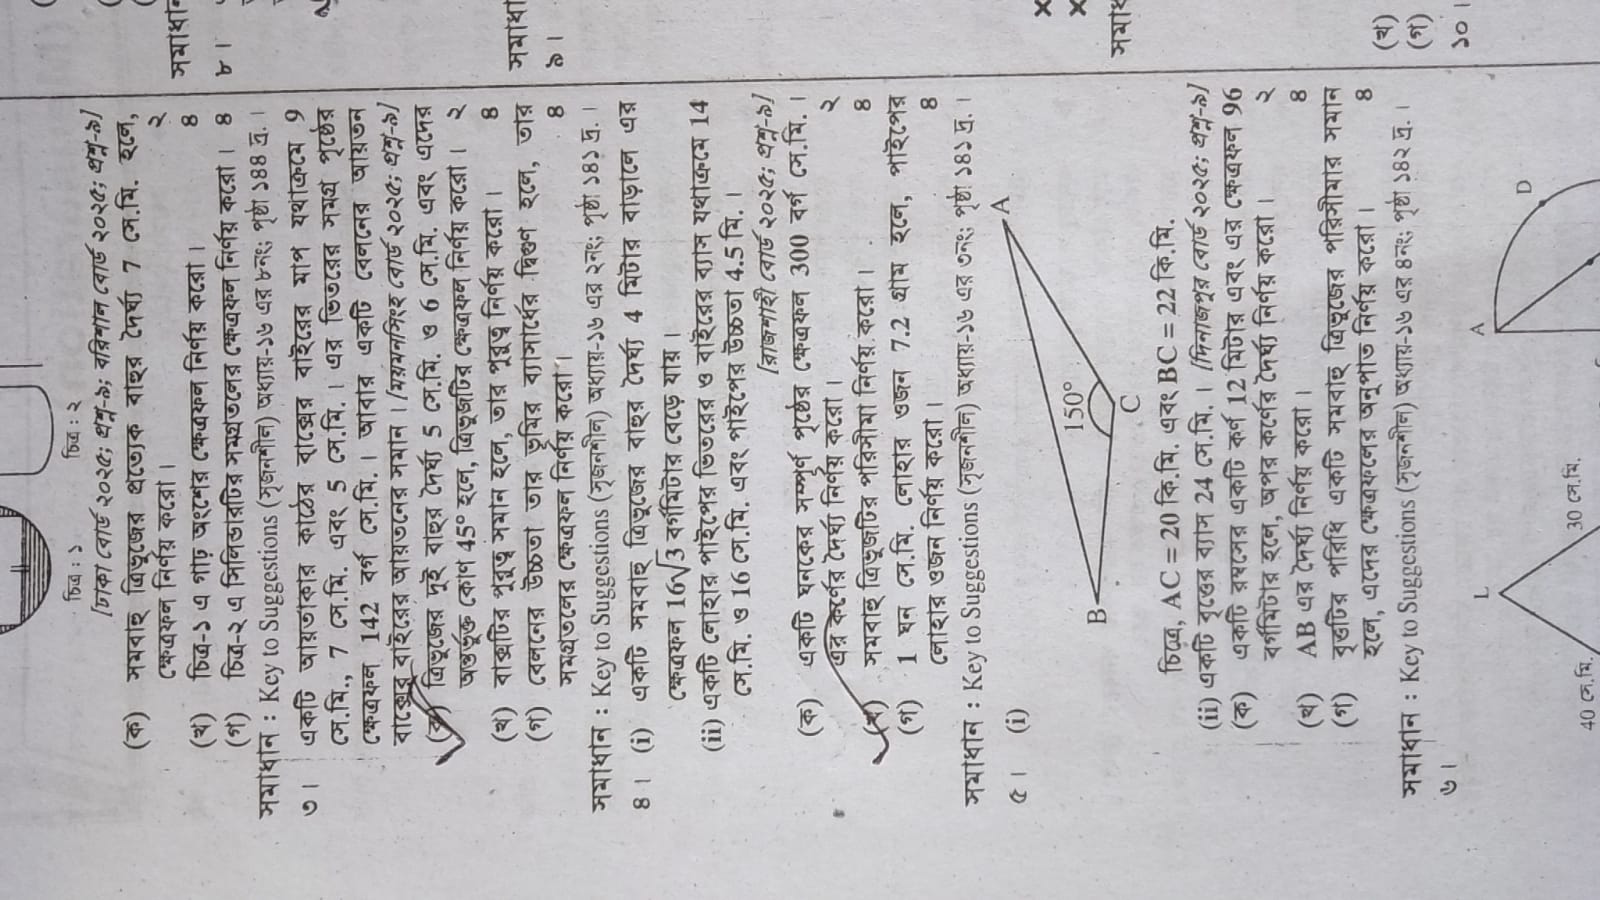 চিত্র : ১
চিত্র : ২
[ঢাকা বোর্ড ২০২৫; প্রশ্ন-৯; বরিশাল বোর্ড ২০২৫; প্রশ্ন-৯]
(ক) সমবাহু ত্রিভুজের প্রত্যেক বাহুর দৈর্ঘ্য 7 সে.মি. হলে,
ক্ষেত্রফল নির্ণয় করো। ২
(খ) চিত্র-১ এ গাঢ় অংশের ক্ষেত্রফল নির্ণয় করো। ৪
(গ) চিত্র-২ এ সিলিন্ডারটির সমগ্রতলের ক্ষেত্রফল নির্ণয় করো। ৪
সমাধান : Key to Suggestions (সৃজনশীল) অধ্যায়-১৬ এর ৮নং; পৃষ্ঠা ১৪৪ দ্র.।
৩। একটি আয়তাকার কাঠের বাক্সের বাইরের মাপ যথাক্রমে 9
সে.মি., 7 সে.মি. এবং 5 সে.মি.। এর ভিতরের সমগ্র পৃষ্ঠের
ক্ষেত্রফল 142 বর্গ সে.মি.। আবার একটি বেলনের আয়তন
বাক্সের বাইরের আয়তনের সমান। [ময়মনসিংহ বোর্ড ২০২৫; প্রশ্ন-৯]
(ক) ত্রিভুজের দুই বাহুর দৈর্ঘ্য 5 সে.মি. ও 6 সে.মি. এবং এদের
অন্তর্ভুক্ত কোণ 45° হলে, ত্রিভুজটির ক্ষেত্রফল নির্ণয় করো। ২
(খ) বাক্সটির পুরুত্ব সমান হলে, তার পুরুত্ব নির্ণয় করো। ৪
(গ) বেলনের উচ্চতা তার ভূমির ব্যাসার্ধের দ্বিগুণ হলে, তার
সমগ্রতলের ক্ষেত্রফল নির্ণয় করো। ৪
সমাধান : Key to Suggestions (সৃজনশীল) অধ্যায়-১৬ এর ২নং; পৃষ্ঠা ১৪১ দ্র.।
৪। (i) একটি সমবাহু ত্রিভুজের বাহুর দৈর্ঘ্য 4 মিটার বাড়ালে এর
ক্ষেত্রফল 16√3 বর্গমিটার বেড়ে যায়।
(ii) একটি লোহার পাইপের ভিতরের ও বাইরের ব্যাস যথাক্রমে 14
সে.মি. ও 16 সে.মি. এবং পাইপের উচ্চতা 4.5 মি.।
[রাজশাহী বোর্ড ২০২৫; প্রশ্ন-৯]
(ক) একটি ঘনকের সম্পূর্ণ পৃষ্ঠের ক্ষেত্রফল 300 বর্গ সে.মি.।
এর কর্ণের দৈর্ঘ্য নির্ণয় করো। ২
(খ) সমবাহু ত্রিভুজটির পরিসীমা নির্ণয় করো। ৪
(গ) 1 ঘন সে.মি. লোহার ওজন 7.2 গ্রাম হলে, পাইপের
লোহার ওজন নির্ণয় করো। ৪
সমাধান : Key to Suggestions (সৃজনশীল) অধ্যায়-১৬ এর ৩নং; পৃষ্ঠা ১৪১ দ্র.।
৫। (i)
A
150°
B
C
চিত্রে, AC = 20 কি.মি. এবং BC = 22 কি.মি.
(ii) একটি বৃত্তের ব্যাস 24 সে.মি.। [দিনাজপুর বোর্ড ২০২৫; প্রশ্ন-৯]
(ক) একটি রম্বসের একটি কর্ণ 12 মিটার এবং এর ক্ষেত্রফল 96
বর্গমিটার হলে, অপর কর্ণের দৈর্ঘ্য নির্ণয় করো। ২
(খ) AB এর দৈর্ঘ্য নির্ণয় করো। ৪
(গ) বৃত্তটির পরিধি একটি সমবাহু ত্রিভুজের পরিসীমার সমান
হলে, এদের ক্ষেত্রফলের অনুপাত নির্ণয় করো। ৪
সমাধান : Key to Suggestions (সৃজনশীল) অধ্যায়-১৬ এর ৪নং; পৃষ্ঠা ১৪২ দ্র.।
৬।
L
A
D
40 সে.মি.
30 সে.মি.
সমাধান
৮।
সমাধা
৯।
সমাধ
(খ)
(গ)
১০।